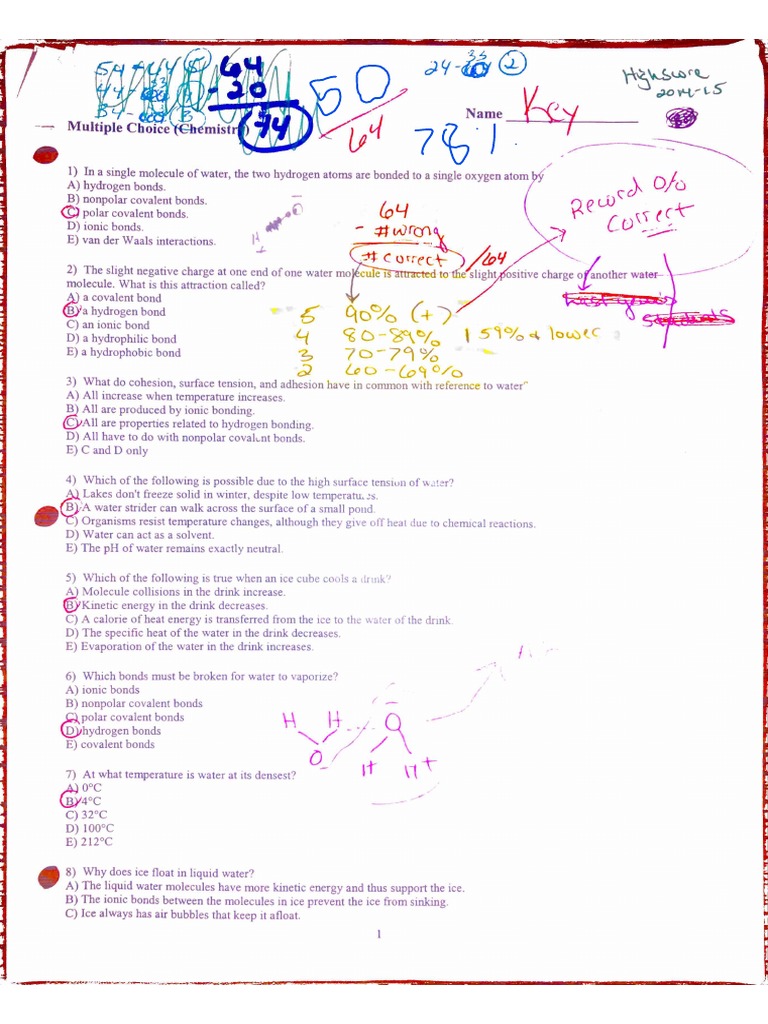 64
- 20
74
50
64
78.1
24-33 2
High score
2014-15
Name Key
Multiple Choice (Chemistry)
1) In a single molecule of water, the two hydrogen atoms are bonded to a single oxygen atom by
A) hydrogen bonds.
B) nonpolar covalent bonds.
C) polar covalent bonds.
D) ionic bonds.
E) van der Waals interactions.
64
- #wrong
#correct /64
Record %
Correct
2) The slight negative charge at one end of one water molecule is attracted to the slight positive charge of another water
molecule. What is this attraction called?
A) a covalent bond
B) a hydrogen bond
C) an ionic bond
D) a hydrophilic bond
E) a hydrophobic bond
5 90% (+)
4 80-89% 1 59% & lower
3 70-79%
2 60-69%
3) What do cohesion, surface tension, and adhesion have in common with reference to water?
A) All increase when temperature increases.
B) All are produced by ionic bonding.
C) All are properties related to hydrogen bonding.
D) All have to do with nonpolar covalent bonds.
E) C and D only
4) Which of the following is possible due to the high surface tension of water?
A) Lakes don't freeze solid in winter, despite low temperatures.
B) A water strider can walk across the surface of a small pond.
C) Organisms resist temperature changes, although they give off heat due to chemical reactions.
D) Water can act as a solvent.
E) The pH of water remains exactly neutral.
5) Which of the following is true when an ice cube cools a drink?
A) Molecule collisions in the drink increase.
B) Kinetic energy in the drink decreases.
C) A calorie of heat energy is transferred from the ice to the water of the drink.
D) The specific heat of the water in the drink decreases.
E) Evaporation of the water in the drink increases.
6) Which bonds must be broken for water to vaporize?
A) ionic bonds
B) nonpolar covalent bonds
C) polar covalent bonds
D) hydrogen bonds
E) covalent bonds
H H O
O H H+
7) At what temperature is water at its densest?
A) 0°C
B) 4°C
C) 32°C
D) 100°C
E) 212°C
8) Why does ice float in liquid water?
A) The liquid water molecules have more kinetic energy and thus support the ice.
B) The ionic bonds between the molecules in ice prevent the ice from sinking.
C) Ice always has air bubbles that keep it afloat.
1